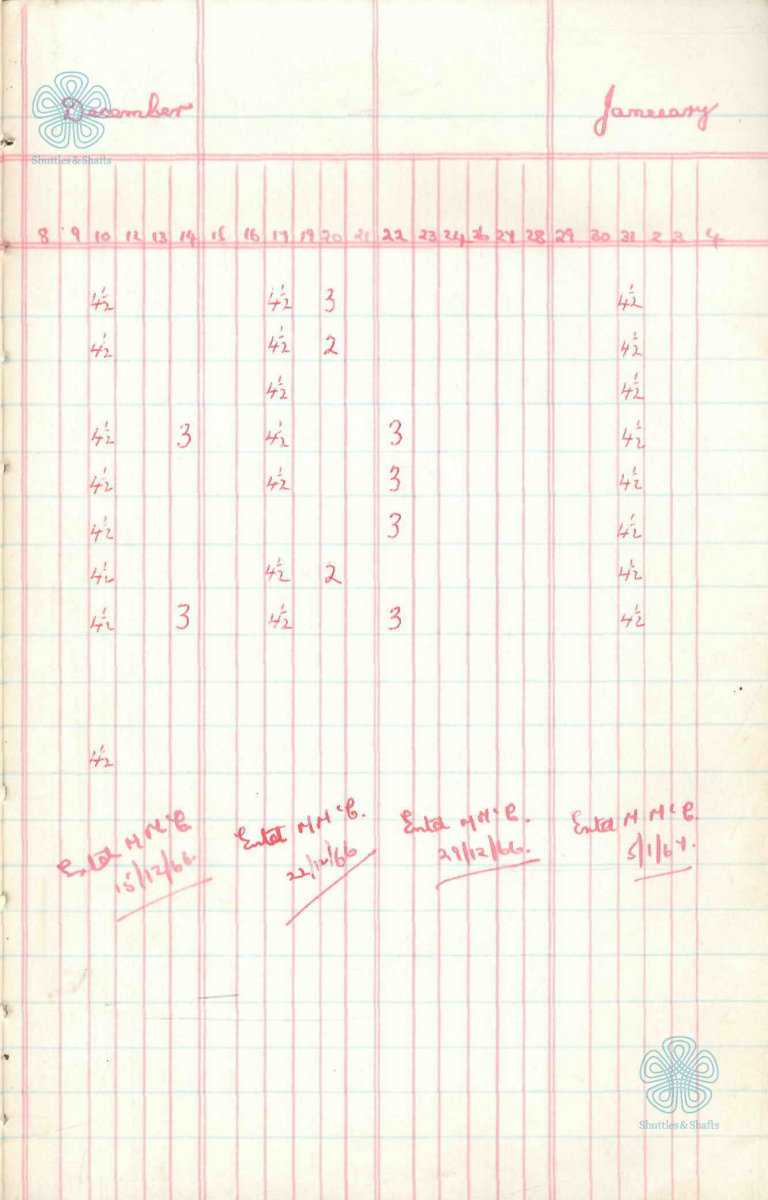 December January
Shuttles & Shafts
8 9 10 12 13 14 15 16 17 19 20 21 22 23 24 26 27 28 29 30 31 2 3 4
4½ 4½ 3 4½
4½ 4½ 2 4½
4½ 4½
4½ 3 4½ 3 4½
4½ 4½ 3 4½
4½ 3 4½
4½ 4½ 2 4½
4½ 3 4½ 3 4½
4½
Entd M McC Entd M McC. Entd M McC. Entd M McC
15/12/66 22/12/66 29/12/66 5/1/67.
Shuttles & Shafts